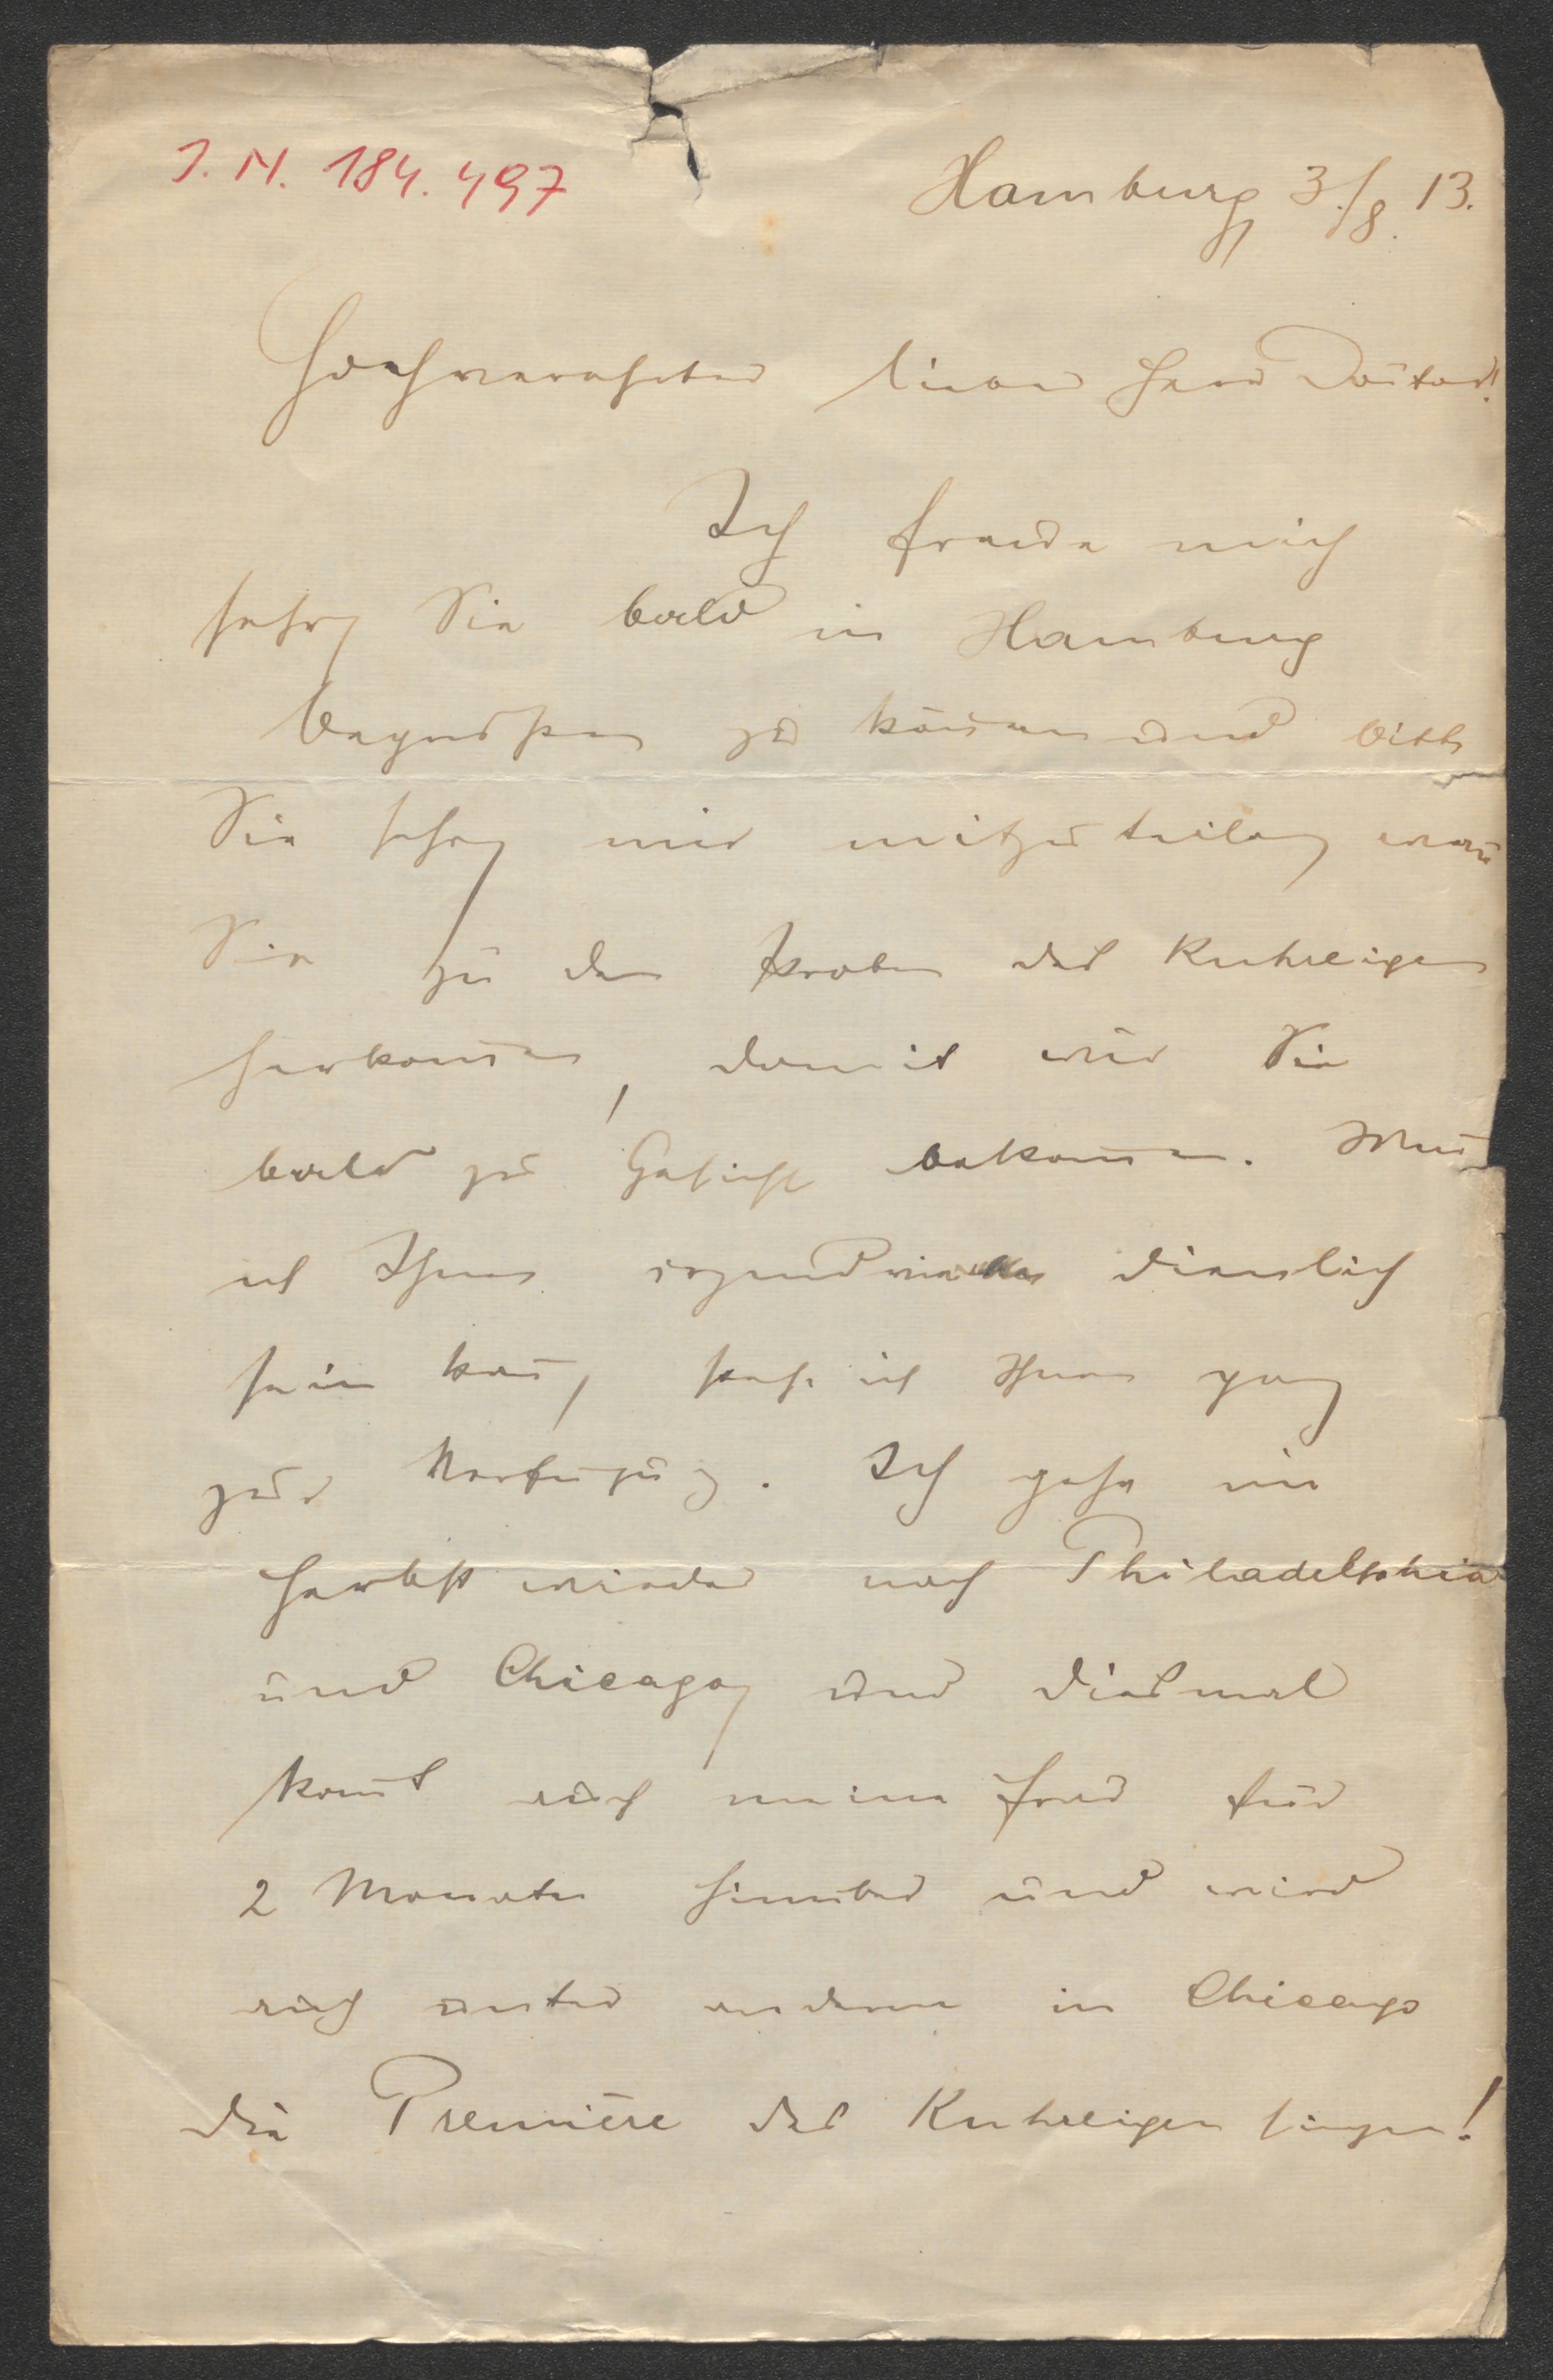 I. N. 184.497
Hamburg 3./8. 13.
Hochverehrter lieber Herr Doktor!
Ich freue mich
sehr Sie bald in Hamburg
begrüßen zu können und bitte
Sie sehr mir mitzuteilen wann
Sie zu den Proben des Kuhreigen
herkommen, damit wir Sie
bald zu Gesicht bekommen. Wenn
ich Ihnen irgendwie dienlich
sein kann, stehe ich Ihnen ganz
zur Verfügung. Ich gehe im
Herbst wieder nach Philadelphia
und Chicago, und diesmal
kommt auch meine Frau für
2 Monate hinüber und wird
auch unter anderem in Chicago
die Première des Kuhreigen singen!